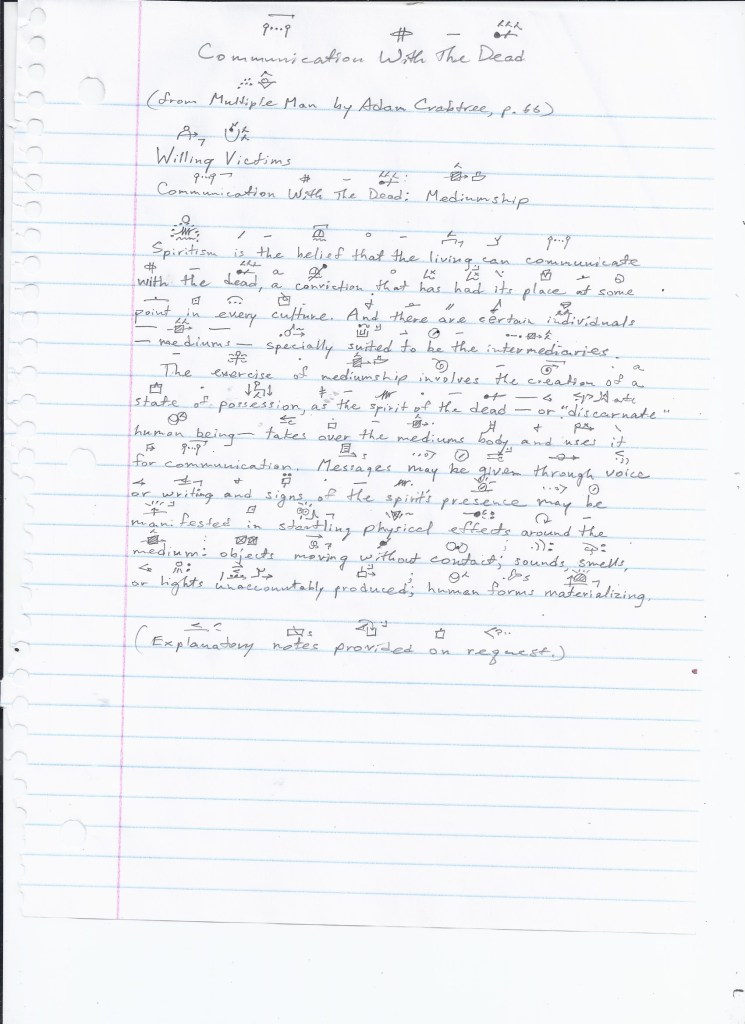 Communication With The Dead
(from Multiple Man by Adam Crabtree, p. 66)
Willing Victims
Communication With The Dead: Mediumship
Spiritism is the belief that the living can communicate
with the dead, a conviction that has had its place at some
point in every culture. And there are certain individuals
— mediums — specially suited to be the intermediaries.
The exercise of mediumship involves the creation of a
state of possession, as the spirit of the dead — or "discarnate"
human being — takes over the mediums body and uses it
for communication. Messages may be given through voice
or writing and signs of the spirit's presence may be
manifested in startling physical effects around the
medium: objects moving without contact; sounds, smells,
or lights unaccountably produced; human forms materializing.
(Explanatory notes provided on request.)